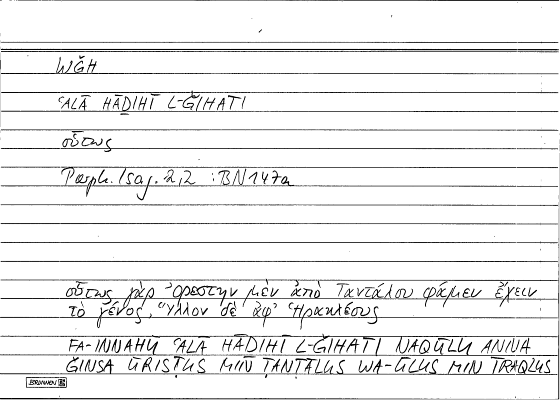 WǦH
ʿALĀ HĀḎIHĪ L-ǦIHATI
οὕτως
Porph. Isag. 2,2 : BN 147a
οὕτως γὰρ Ὀρέστην μὲν ἀπὸ Ταντάλου φάμεν ἔχειν
τὸ γένος, Ὕλλον δὲ ἀφ' Ἡρακλέους
FA-INNAHŪ ʿALĀ HĀḎIHĪ L-ǦIHATI NAQŪLU ANNA
ǦINSA ŪRISṬUS MIN ṬANṬĀLUS WA-ŪLUS MIN IRAQLUS
BRUNNEN